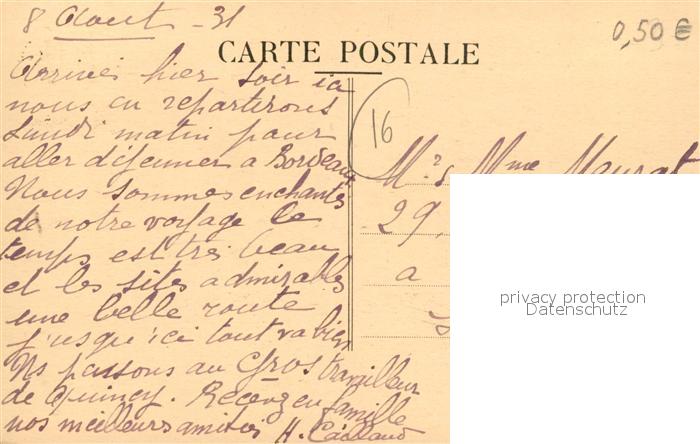 8 Aout - 31
0,50 €
CARTE POSTALE
16
Arrivés hier soir ici
nous en repartirons
Lundi matin pour
aller déjeuner a Bordeaux
Nous sommes enchantés
de notre voyage le
temps est très beau
et les sites admirables
une belle route
jusqu'ici tout va bien
Ns passons au Gros travailleur
de Quincy. Recevez en famille
nos meilleurs amitiés H. Caillaud
Mr & Mme Meurat
29,
a
privacy protection
Datenschutz